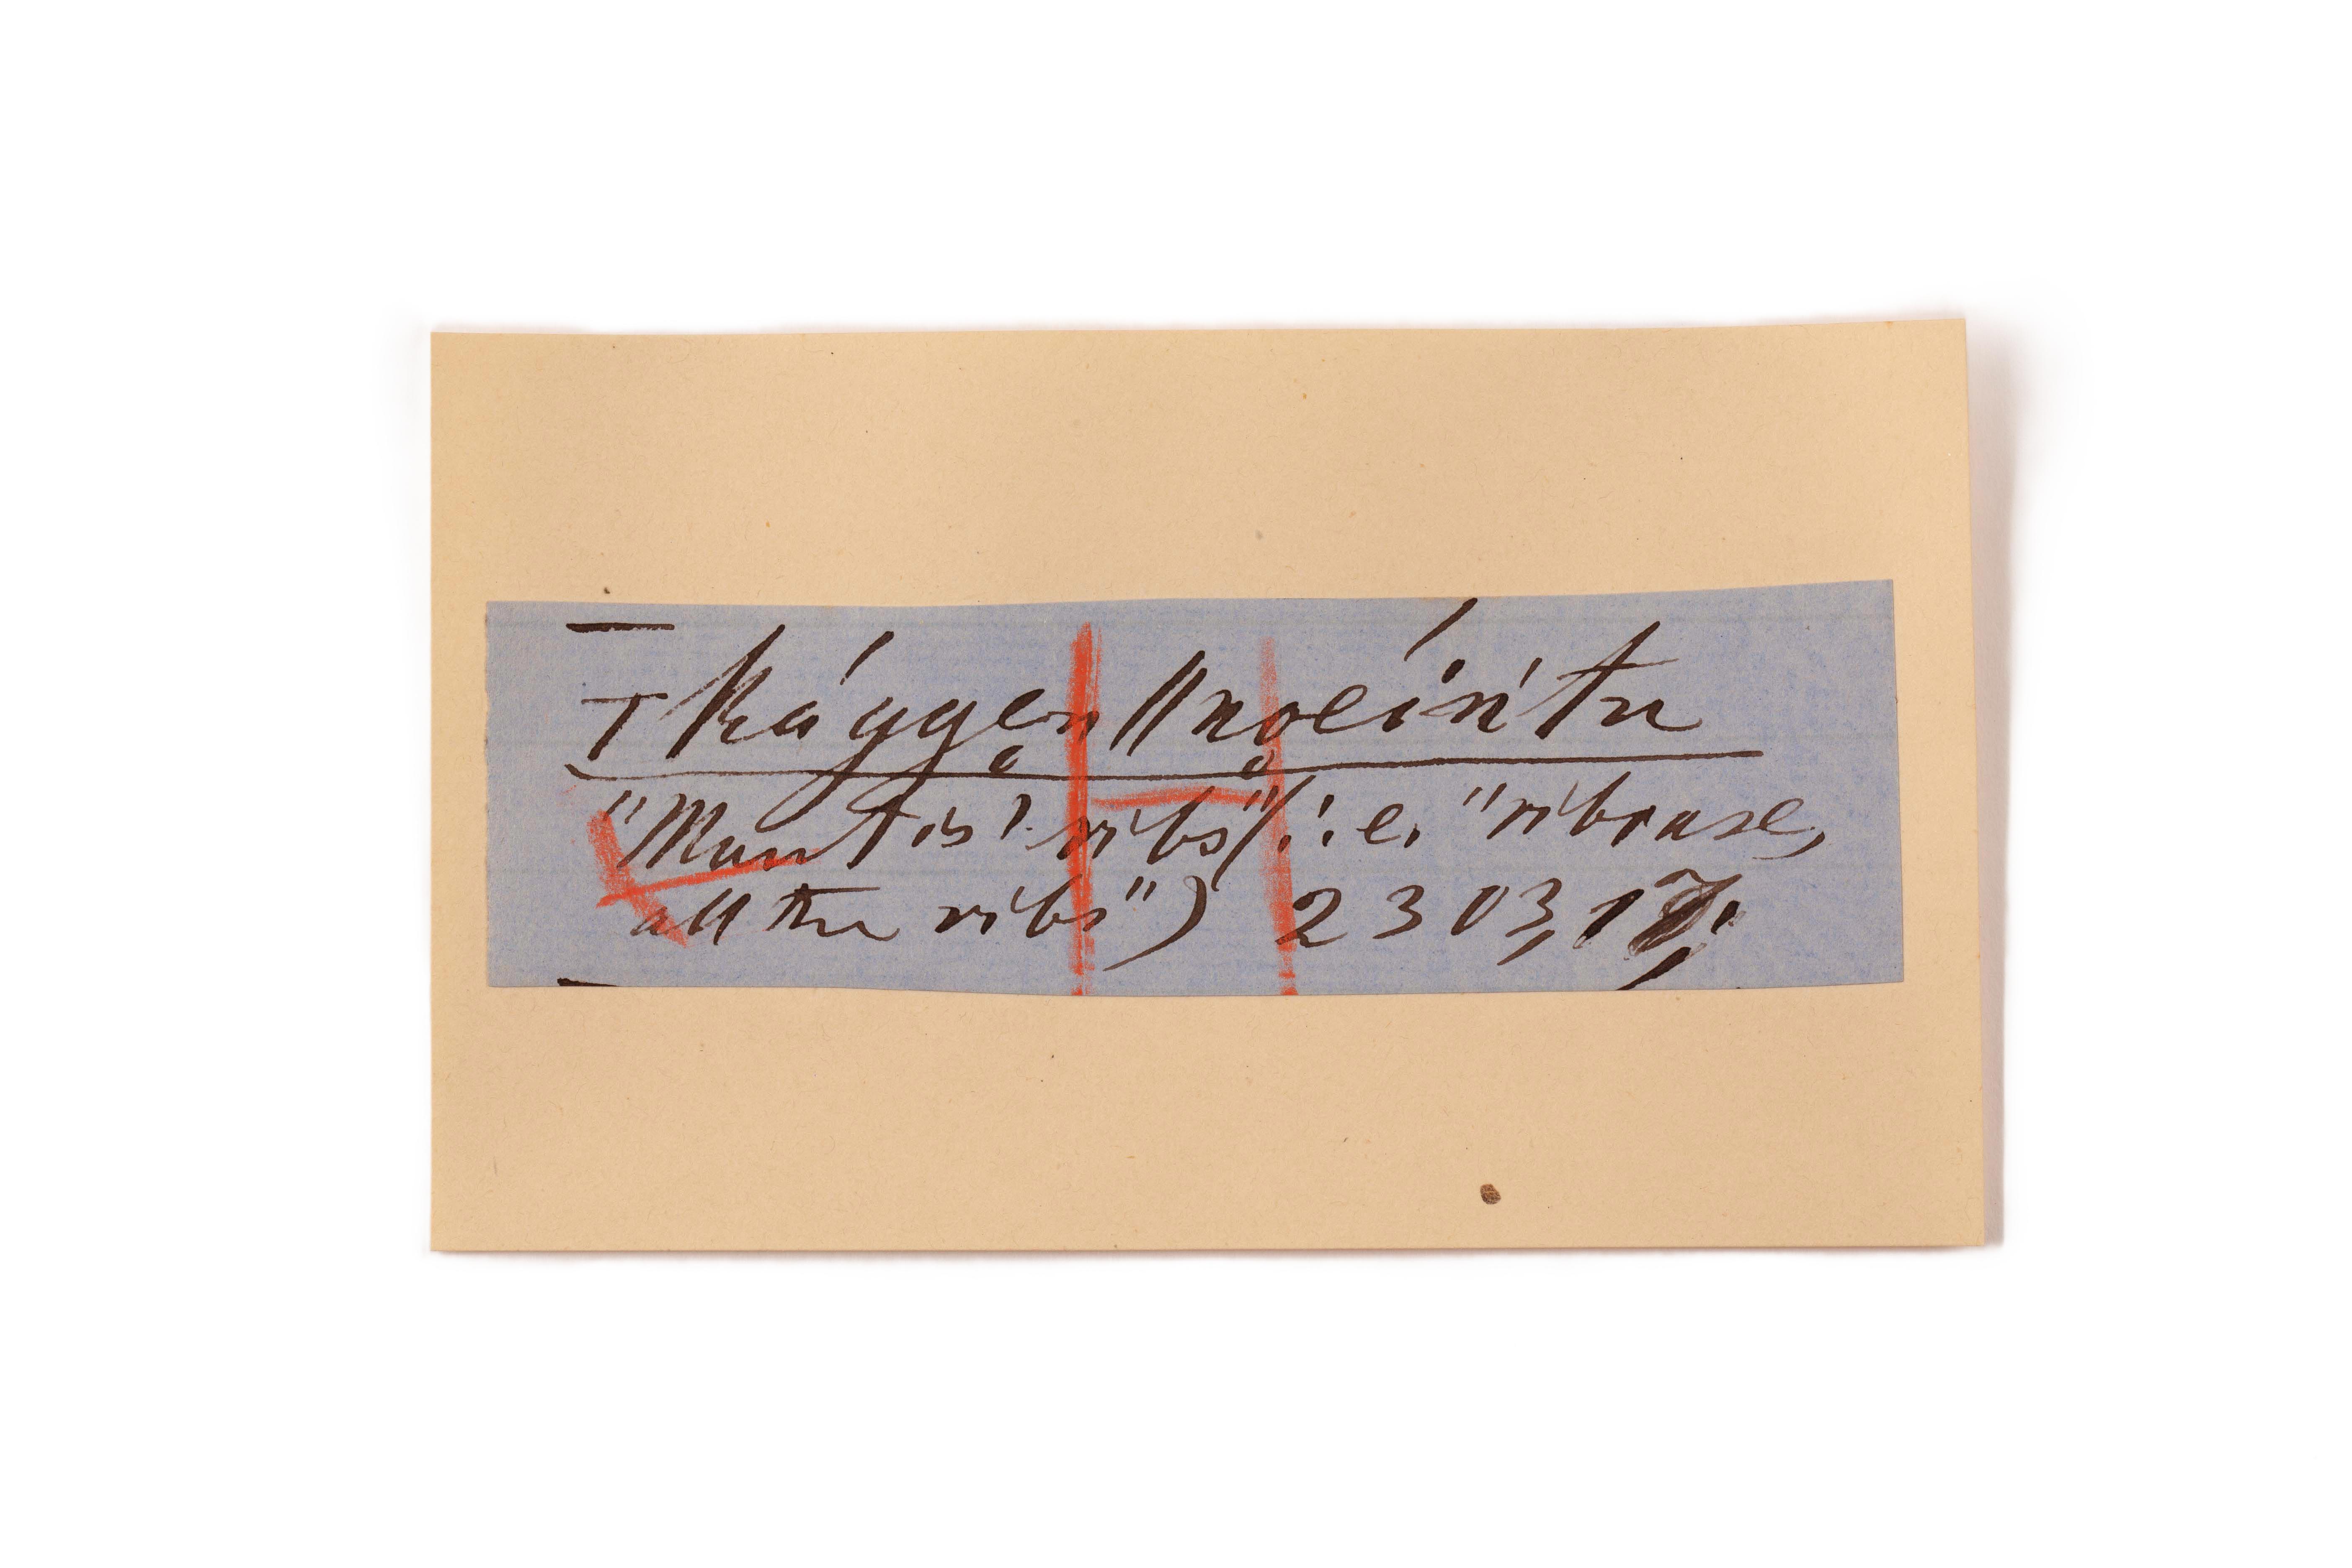 ⊤ |kággęn ‖nọeíń̇tu
"Mantis' ribs" (i.e. "ribrase,
all the ribs") 2303,17.